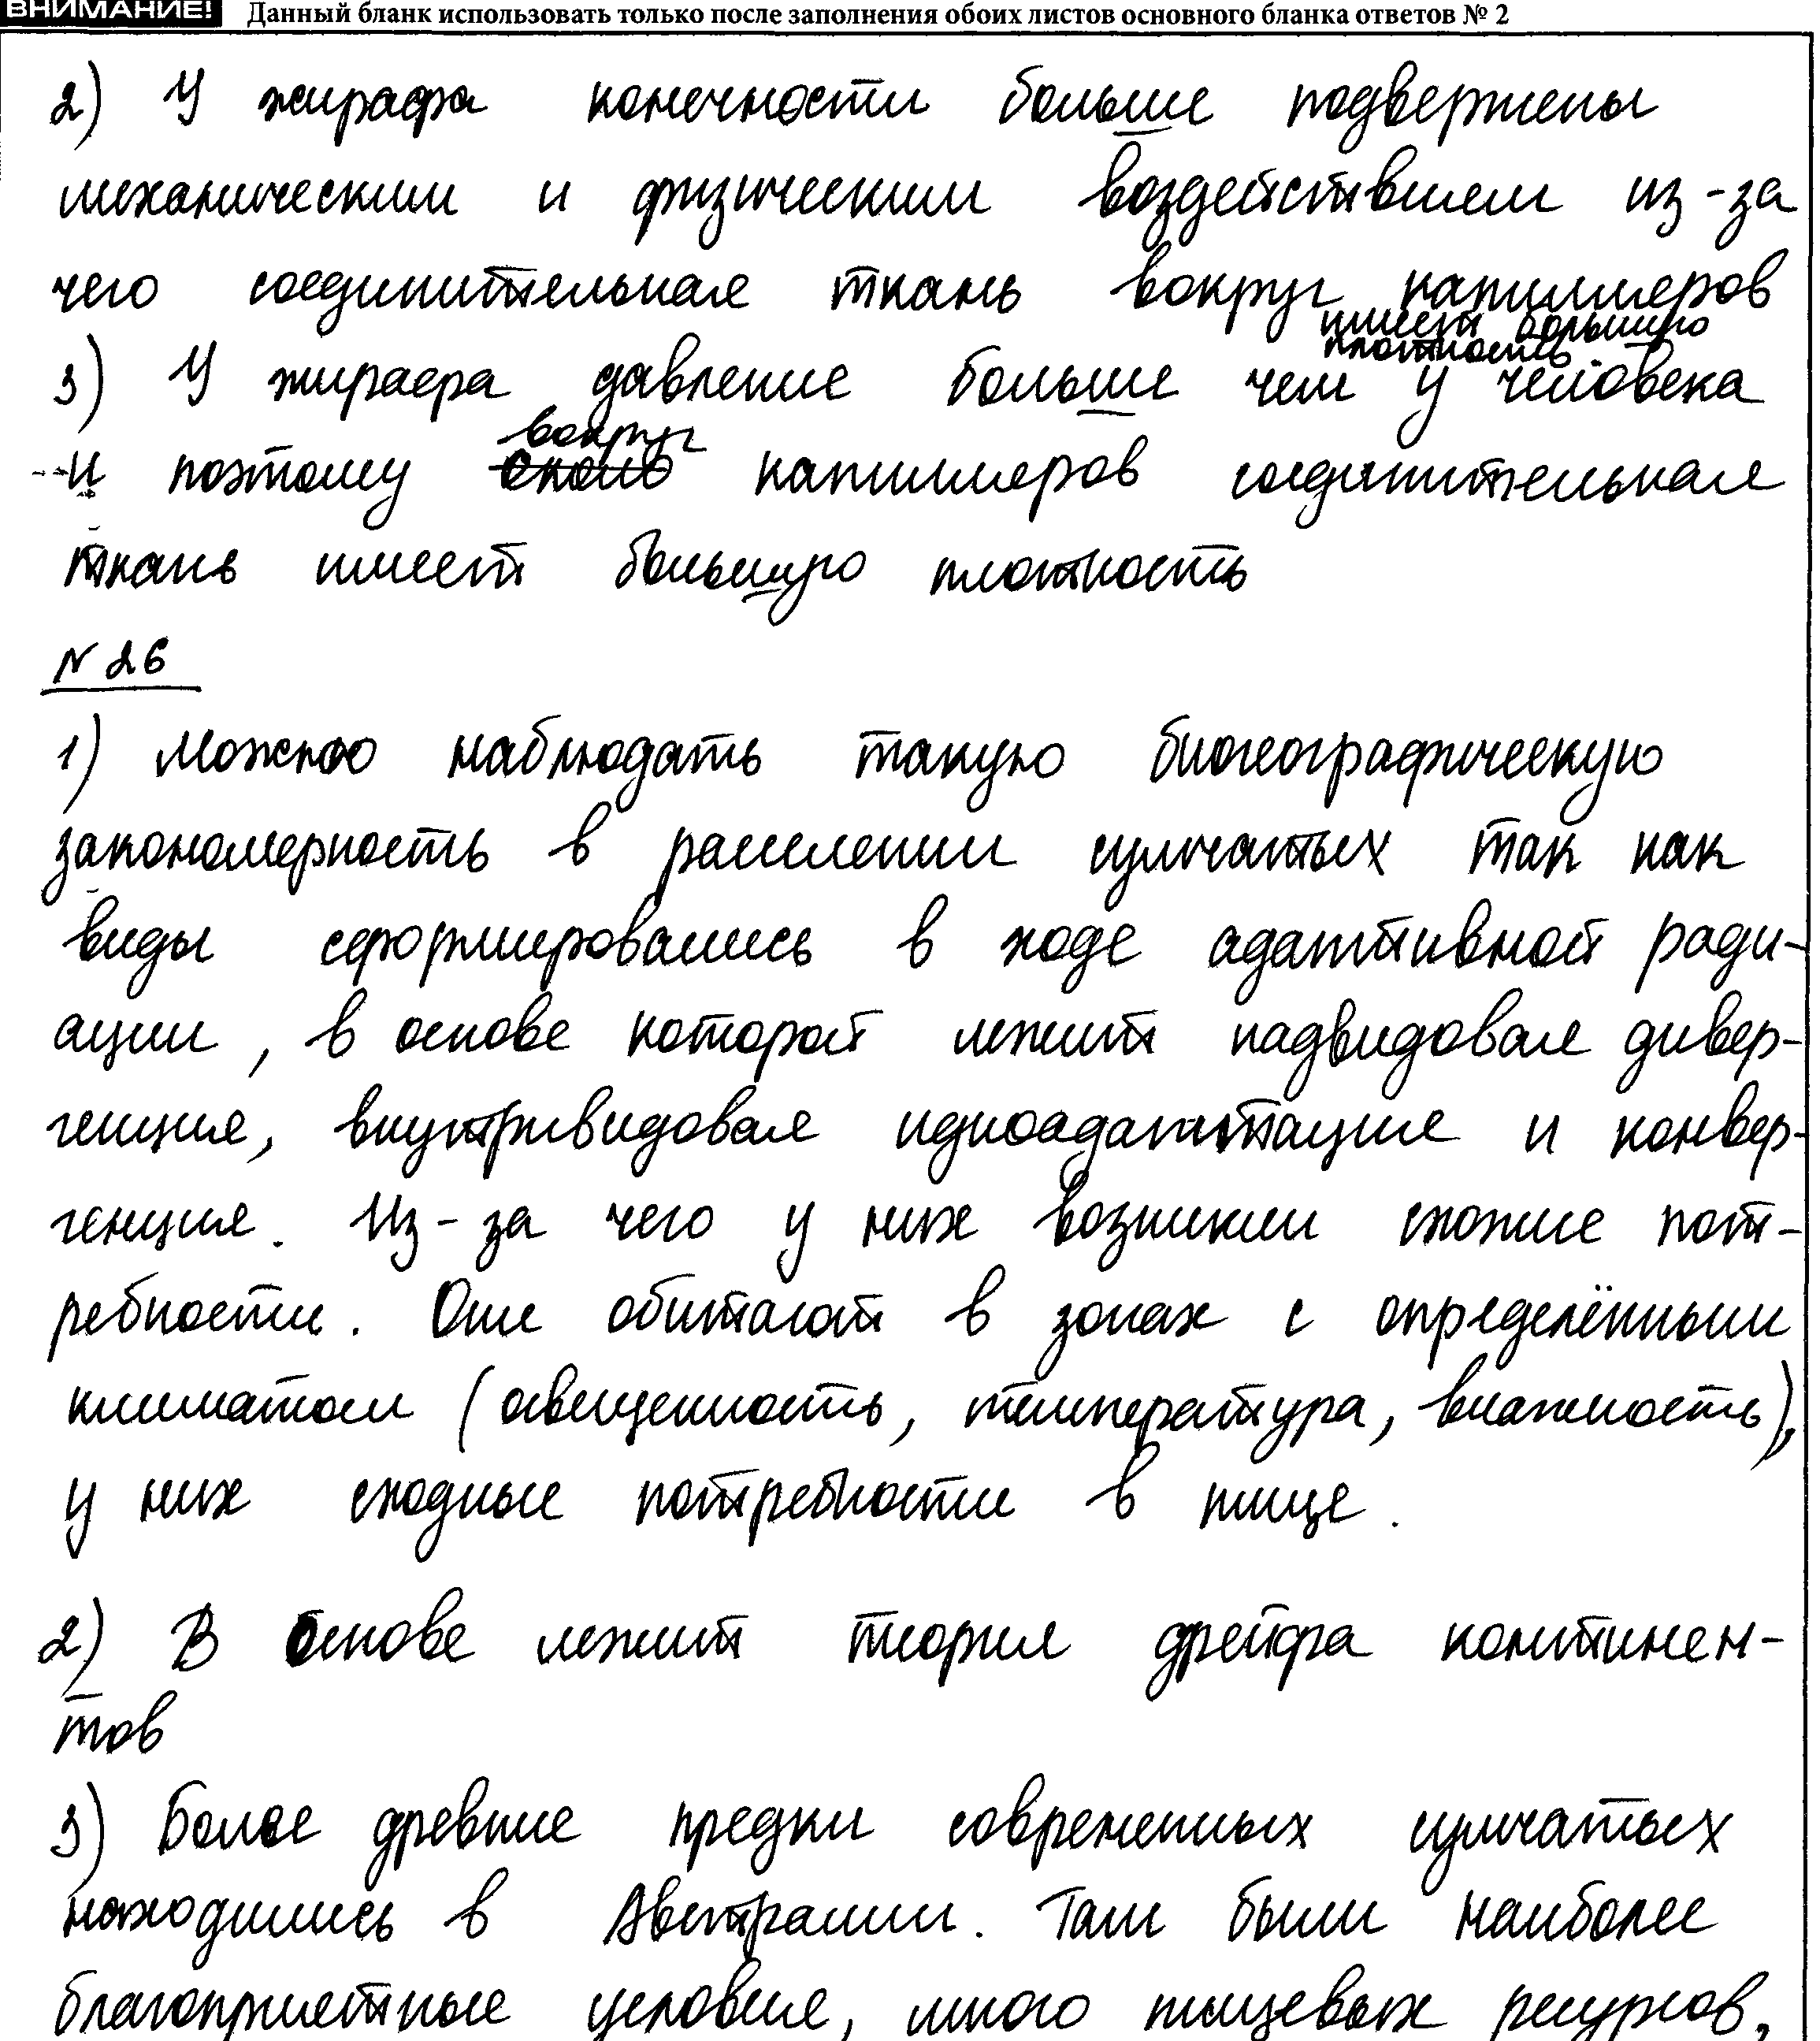 ВНИМАНИЕ! Данный бланк использовать только после заполнения обоих листов основного бланка ответов № 2
2) У жирафа конечности больше подвержены
механическим и физическим воздействием из-за
чего соединительная ткань вокруг капилляров
имеет большую
плотность.
3) У жирафа давление больше чем у человека
и поэтому вокруг капилляров соединительная
ткань имеет большую плотность
N 26
1) Можно наблюдать такую биогеографическую
закономерность в расселении сумчатых так как
виды сформировались в ходе адаптивной ради-
ации, в основе которой лежит надвидовая дивер-
генция, внутривидовая идиоадаптация и конвер-
генция. Из-за чего у них возникли схожие пот-
ребности. Они обитают в зонах с определёнными
климатом (освещенность, температура, влажность),
у них сходные потребности в пище.
2) В основе лежит теория дрейфа континен-
тов
3) Более древние предки современных сумчатых
находились в Австралии. Там были наиболее
благоприятные условия, много пищевых ресурсов,